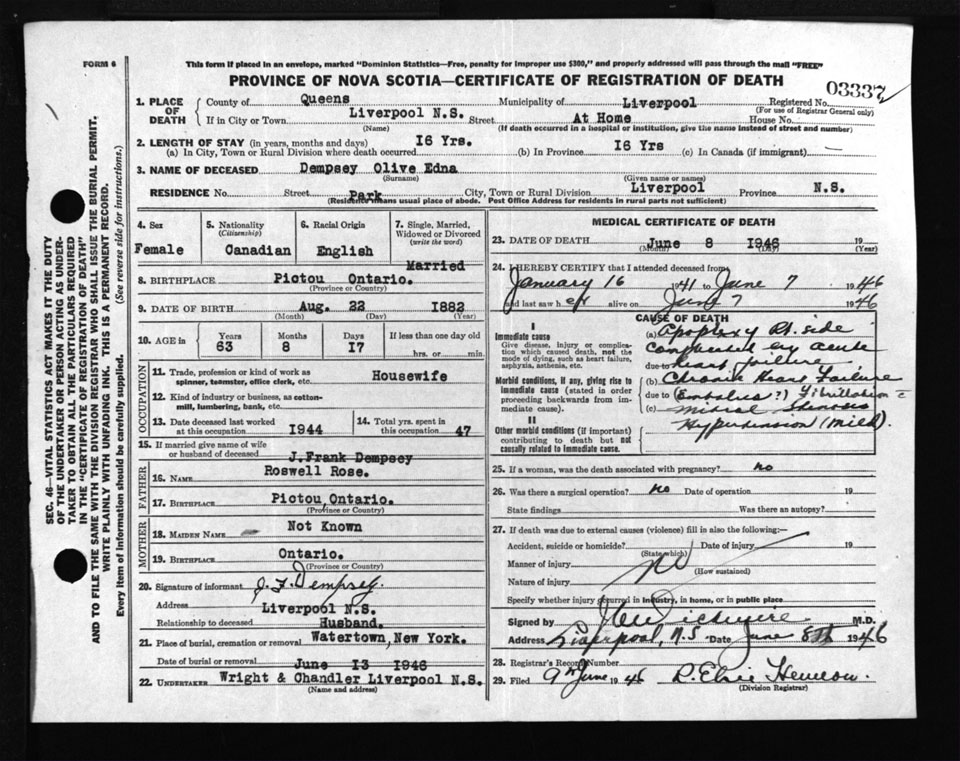 FORM 6
This form if placed in an envelope, marked "Dominion Statistics—Free, penalty for improper use $300," and properly addressed will pass through the mail "FREE"
PROVINCE OF NOVA SCOTIA—CERTIFICATE OF REGISTRATION OF DEATH
03337
1. PLACE OF DEATH
County of Queens Municipality of Liverpool Registered No.
(For use of Registrar General only)
If in City or Town Liverpool N.S. Street At Home House No.
(Name) (If death occurred in a hospital or institution, give the name instead of street and number)
2. LENGTH OF STAY (in years, months and days)
(a) In City, Town or Rural Division where death occurred 16 Yrs. (b) In Province 16 Yrs (c) In Canada (if immigrant) —
3. NAME OF DECEASED Dempsey Olive Edna
(Surname) (Given name or names)
RESIDENCE No. Street Park City, Town or Rural Division Liverpool Province N.S.
(Residence means usual place of abode. Post Office Address for residents in rural parts not sufficient)
4. Sex
Female
5. Nationality
(Citizenship)
Canadian
6. Racial Origin
English
7. Single, Married, Widowed or Divorced
(write the word)
Married
8. BIRTHPLACE Pictou Ontario.
(Province or Country)
9. DATE OF BIRTH Aug. 22 1882
(Month) (Day) (Year)
10. AGE in Years Months Days If less than one day
63 8 17 hrs. or min.
OCCUPATION
11. Trade, profession or kind of work as spinner, teamster, office clerk, etc. Housewife
12. Kind of industry or business, as cotton-mill, lumbering, bank, etc.
13. Date deceased last worked at this occupation 1944
14. Total yrs. spent in this occupation 47
15. If married give name of wife or husband of deceased J.Frank Dempsey
FATHER
16. NAME Roswell Rose.
17. BIRTHPLACE Pictou Ontario.
(Province or Country)
MOTHER
18. MAIDEN NAME Not Known
19. BIRTHPLACE Ontario.
(Province or Country)
20. Signature of informant J. F. Dempsey
Address Liverpool N.S.
Relationship to deceased Husband.
21. Place of burial, cremation or removal Watertown, New York.
Date of burial or removal June 13 1946
22. UNDERTAKER Wright & Chandler Liverpool N.S.
(Name and address)
MEDICAL CERTIFICATE OF DEATH
23. DATE OF DEATH June 8 1946 19
(Month) (Day) (Year)
24. I HEREBY CERTIFY that I attended deceased from
January 16 1941 to June 7 1946
and last saw her alive on June 7 1946
CAUSE OF DEATH
I
Immediate cause
Give disease, injury or complication which caused death, not the mode of dying, such as heart failure, asphyxia, asthenia, etc.
(a) Apoplexy Rt. side
by acute
due to heart failure
Morbid conditions, if any, giving rise to immediate cause (stated in order proceeding backwards from immediate cause).
(b) Chronic Heart Failure
due to (Embolus?) Fibrillation =
(c) Mitral Stenosis
II
Other morbid conditions (if important) contributing to death but not causally related to immediate cause.
Hypertension (Mild).
25. If a woman, was the death associated with pregnancy? no
26. Was there a surgical operation? no Date of operation 19
State findings Was there an autopsy?
27. If death was due to external causes (violence) fill in also the following:—
Accident, suicide or homicide? Date of injury 19
(State which)
Manner of injury no
(How sustained)
Nature of injury
Specify whether injury occurred in industry, in home, or in public place
Signed by M.D.
Address Liverpool, N.S. Date June 8th 1946
28. Registrar's Record Number
29. Filed 9th June 1946
(Division Registrar)
SEC. 46—VITAL STATISTICS ACT MAKES IT THE DUTY
OF THE UNDERTAKER OR PERSON ACTING AS UNDER-
TAKER TO OBTAIN ALL THE PARTICULARS REQUIRED
IN THE "CERTIFICATE OF REGISTRATION OF DEATH"
AND TO FILE THE SAME WITH THE DIVISION REGISTRAR WHO SHALL ISSUE THE BURIAL PERMIT.
WRITE PLAINLY WITH UNFADING INK. THIS IS A PERMANENT RECORD.
Every item of information should be carefully supplied. (See reverse side for instructions.)